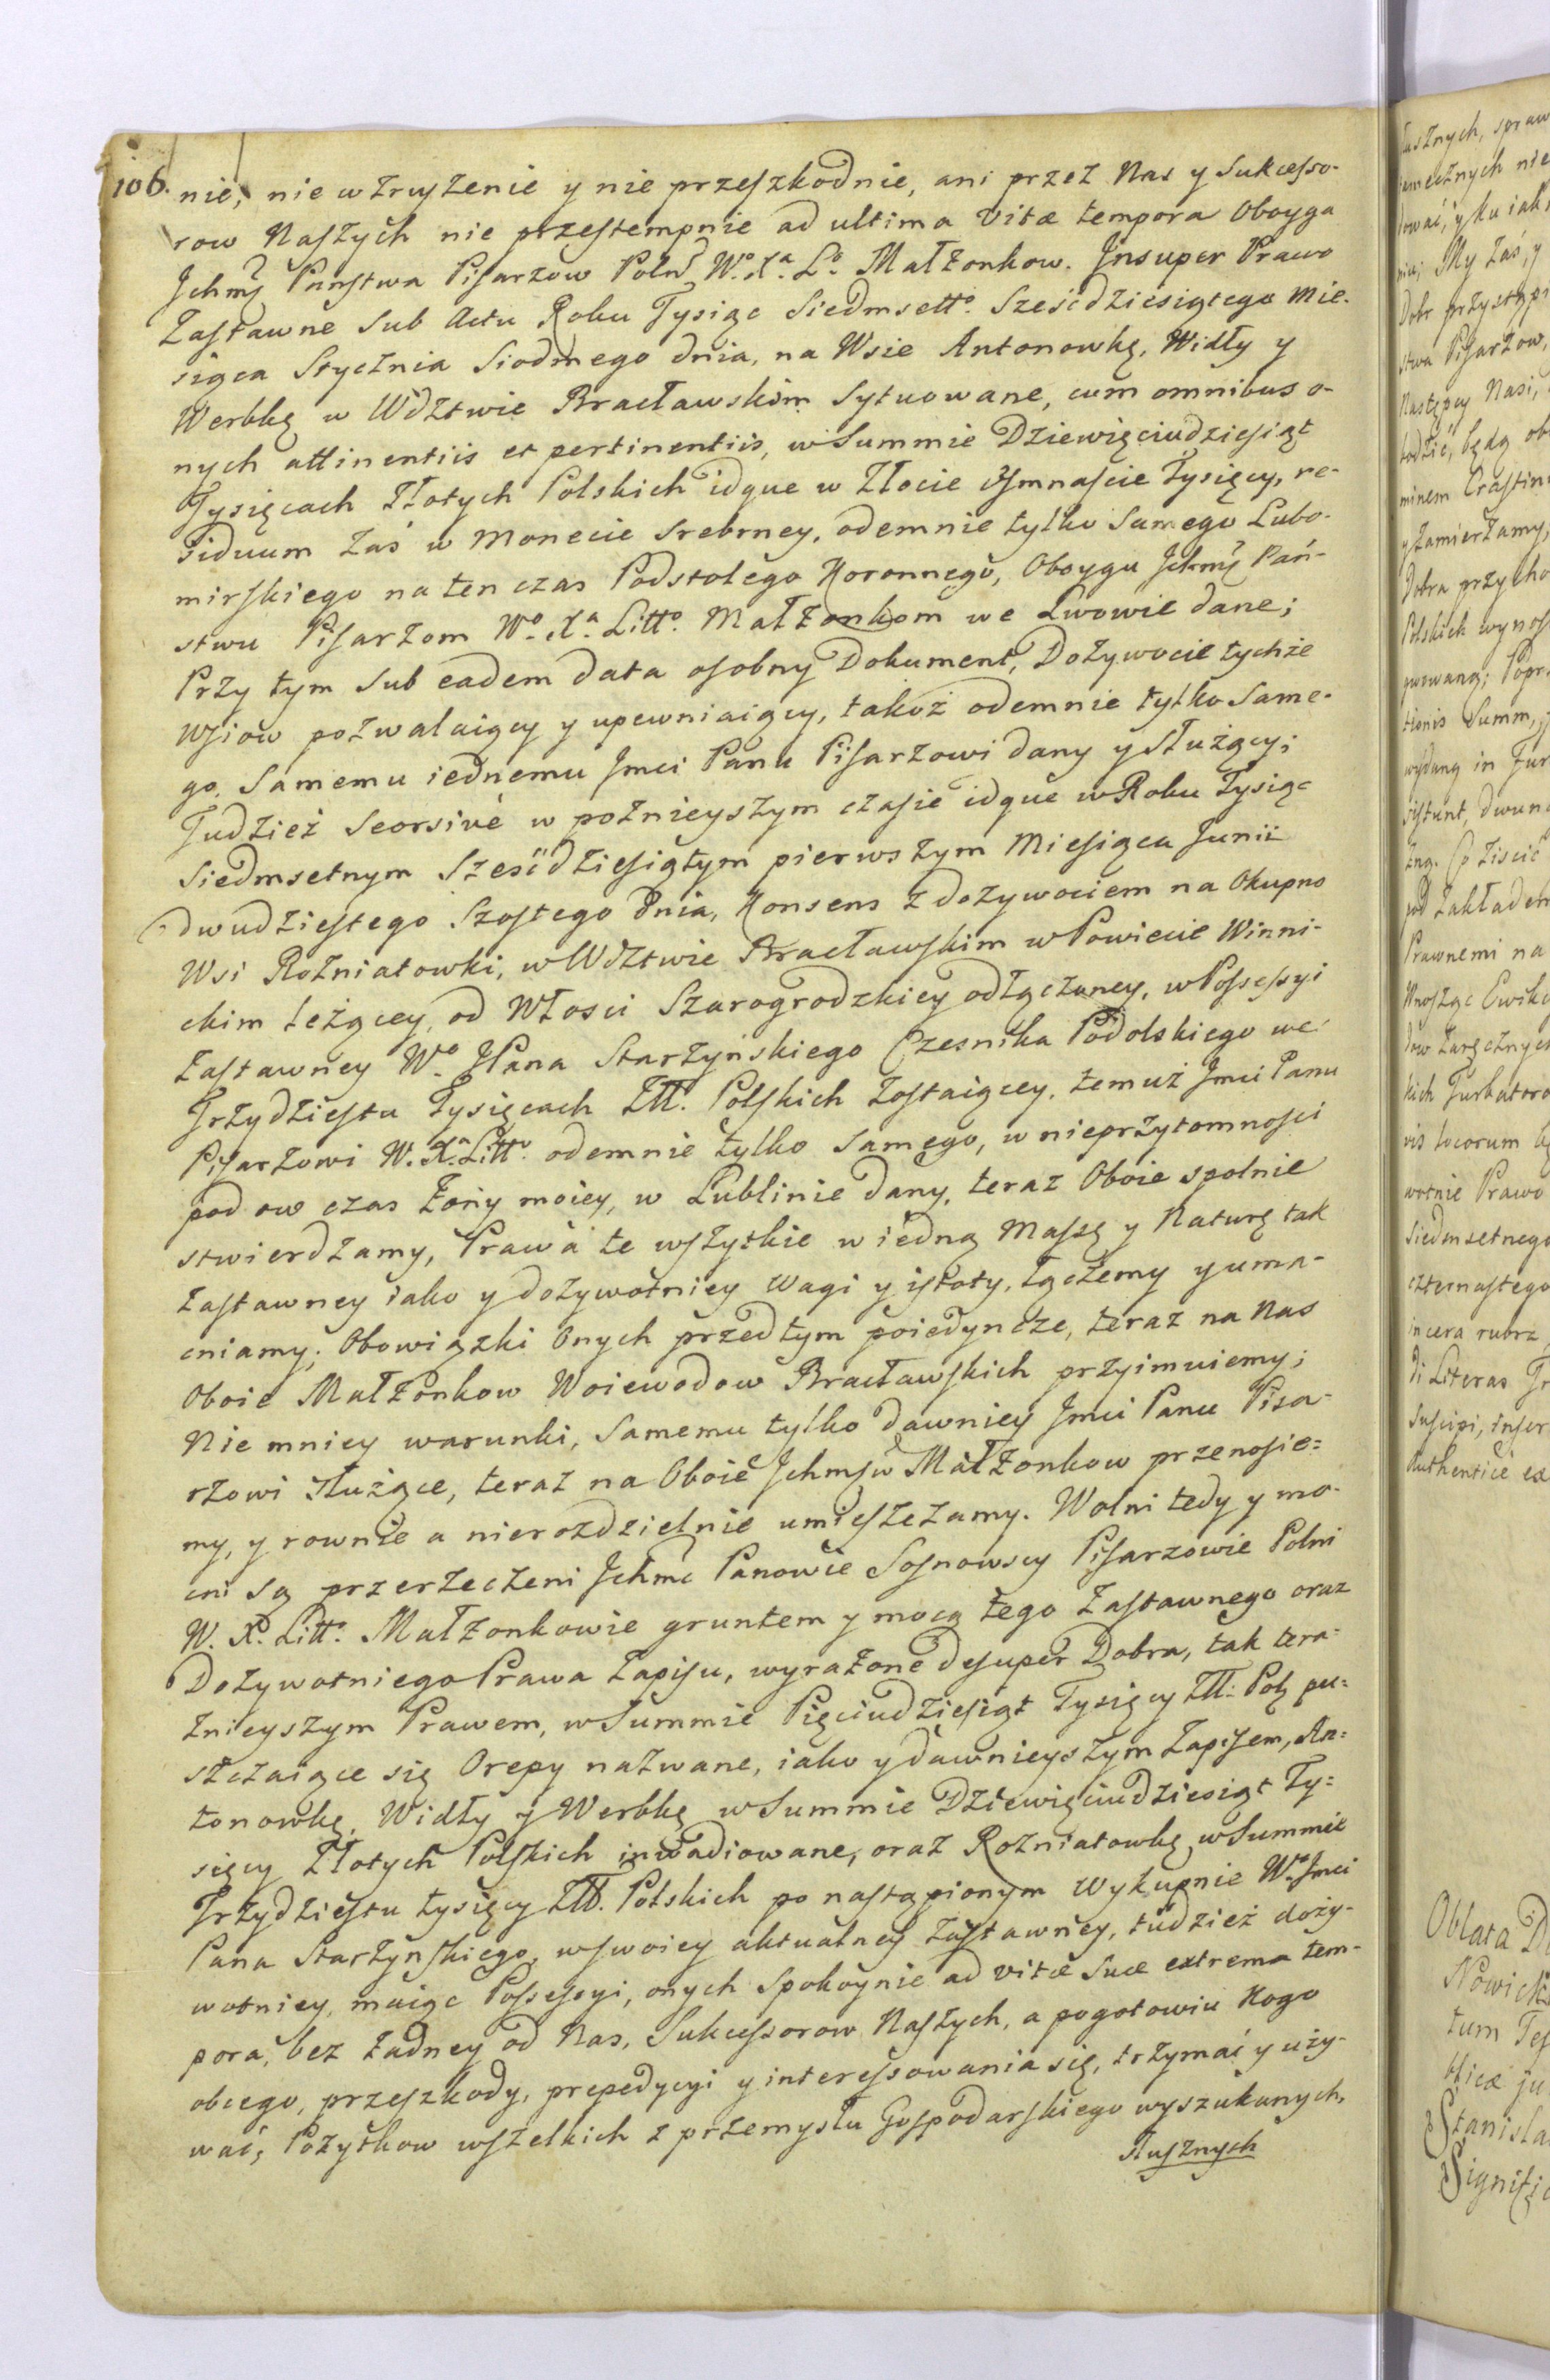 106. nie, nie wzruszenie y nie przeszkodnie, ani przez Nas y Sukcesso-
row Naszych nie przestempnie ad ultima vitæ tempora Oboyga
Jchmć Państwa Pisarzow Poln W.º X.ª L.º Małżonkow. Jnsuper Prawo
Zastawne Sub Actu Roku Tysiąc Siedmsett.º Sześćdziesiątego Mie-
siąca Stycznia Siodmego dnia, na Wsie Antonowkę, Widły y
Werbkę w Wdztwie Bracławskim Sytuowane, cum omnibus o-
nych attinentiis et pertinentiis, w Summie Dziewięciudziesiąt
Tysięcach Złotych Polskich idque w Złocie Osmnaście Tysięcy, re-
siduum zaś w Monecie Srebrney, odemnie tylko Samego Lubo-
mirskiego na ten czas Podstolego Koronnego, Oboygu Jchmć Pań-
stwu Pisarzom W.º X.ª Litt.º Małżonkom we Lwowie dane;
Przy tym Sub eadem data osobny Dokument, Dożywocie tychże
Wsiow pozwalaiący y upewniaiący, takoż odemnie tylko Same-
go, Samemu iednemu Jmci Panu Pisarzowi dany y Służący;
Tudzież Seorsive w poznieyszym czasie idque w Roku Tysiąc
Siedmsetnym Sześćdziesiątym pierwszym Miesiąca Junii
dwudziestego Szostego dnia, Konsens z dożywociem na Okupno
Wsi Rozniatowki, w Wdztwie Bracławskim w Powiecie Winni-
ckim leżącey, od Włości Szarogrodzkiey odłączaney, w Possessyi
Zastawney W.º JPana Starzyńskiego Czesnika Podolskiego we
Trzydziestu Tysięcach Złł. Polskich zostaiącey, temuż Jmci Panu
Pisarzowi W. X.ª Litt.º odemnie tylko Samego, w nieprzytomności
pod ow czas Żony moiey, w Lublinie dany, teraz Oboie spolnie
stwierdzamy, Prawa te wszytkie w iedną Massę y Naturę tak
zastawney iako y dożywotniey Wagi y istoty, łączemy y uma-
cniamy; Obowiązki Onych przedtym poiedyncze, teraz na Nas
Oboie Małżonkow Woiewodow Bracławskich przyimuiemy;
Nie mniey warunki, Samemu tylko dawniey Jmci Panu Pisa-
rzowi służące, teraz na Oboie Jchmsćw Małżonkow przenosie=
my, y rownie a nierozdzielnie umieszczamy. Wolni tedy y mo-
cni są przerzeczeni Jchmć Panowie Sosnowscy Pisarzowie Polni
W. X. Litt.º Małżonkowie gruntem y mocą tego Zastawnego oraz
Dożywotniego Prawa Zapisu, wyrażone desuper Dobra, tak tera=
znieyszym Prawem, w Summie Pięciudziesiąt Tysięcy Złł: Pol pu=
szczaiące się Orepy nazwane, iako y dawnieyszym Zapisem, An=
tonowkę, Widły y Werbkę w Summie Dziewięciudziesiąt Ty=
sięcy Złotych Polskich inwadiowane, oraz Rozniatowkę w Summie
Trzydziestu tysięcy Złł. Polskich po nastąpionym Wykupnie W.º Jmci
Pana Starzyńskiego, w swoiey aktualney Zastawney, tudzież doży-
wotniey, maiąc Possessyi, onych Spokoynie ad vitæ Suæ extrema tem-
pora, bez żadney od Nas, Sukcessorow Naszych, a pogotowiu Kogo
obcego, przeszkody, prepedycyi y interessowania się, trzymać y uży-
wać; Pożytkow wszelkich z przemysłu Gospodarskiego wyszukanych,
słusznych